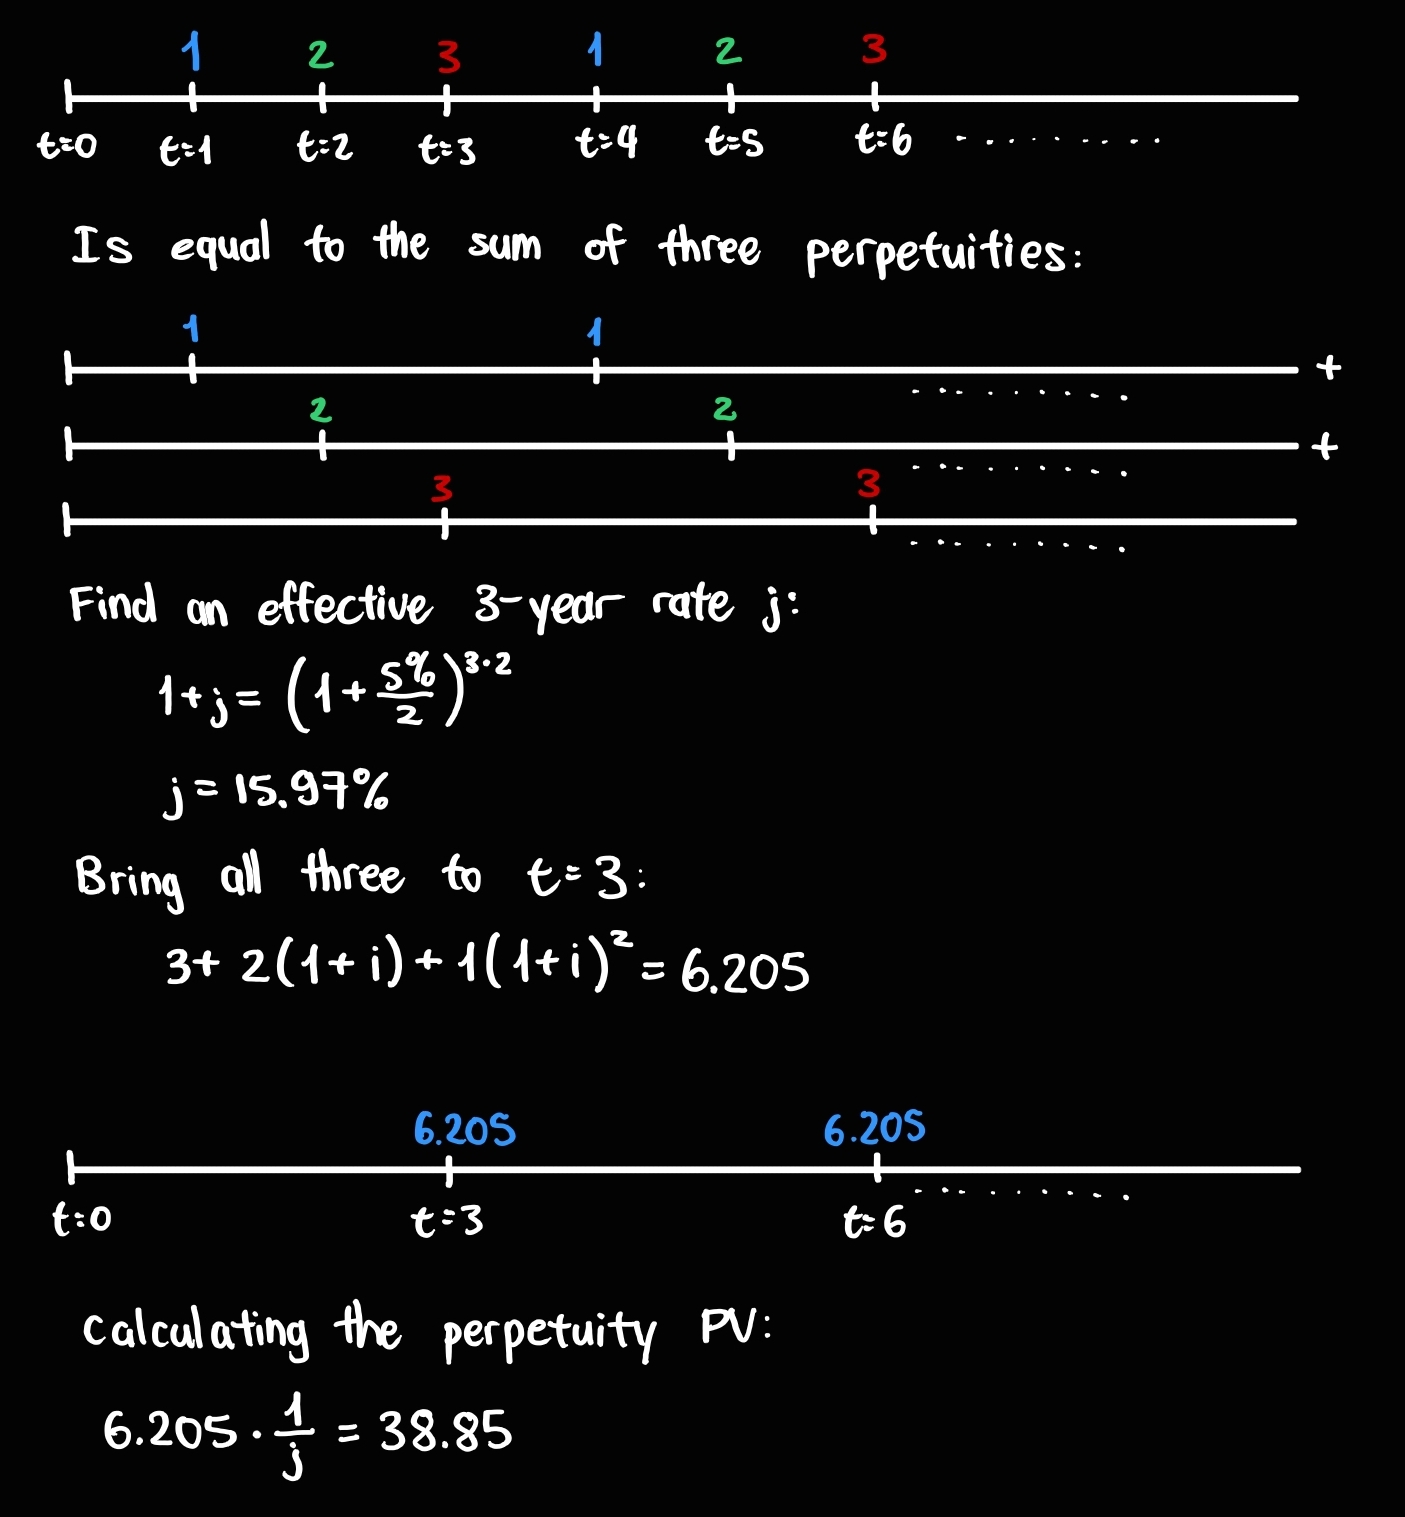 1 2 3 1 2 3
t=0 t=1 t=2 t=3 t=4 t=5 t=6 ........
Is equal to the sum of three perpetuities:
1 1 +
........
2 2 +
........
3 3
........
Find an effective 3-year rate j:
1+j= (1+ 5%/2)^3·2
j= 15.97%
Bring all three to t=3:
3+ 2(1+i)+1(1+i)² = 6.205
6.205 6.205
........
t=0 t=3 t=6
Calculating the perpetuity PV:
6.205 · 1/j = 38.85